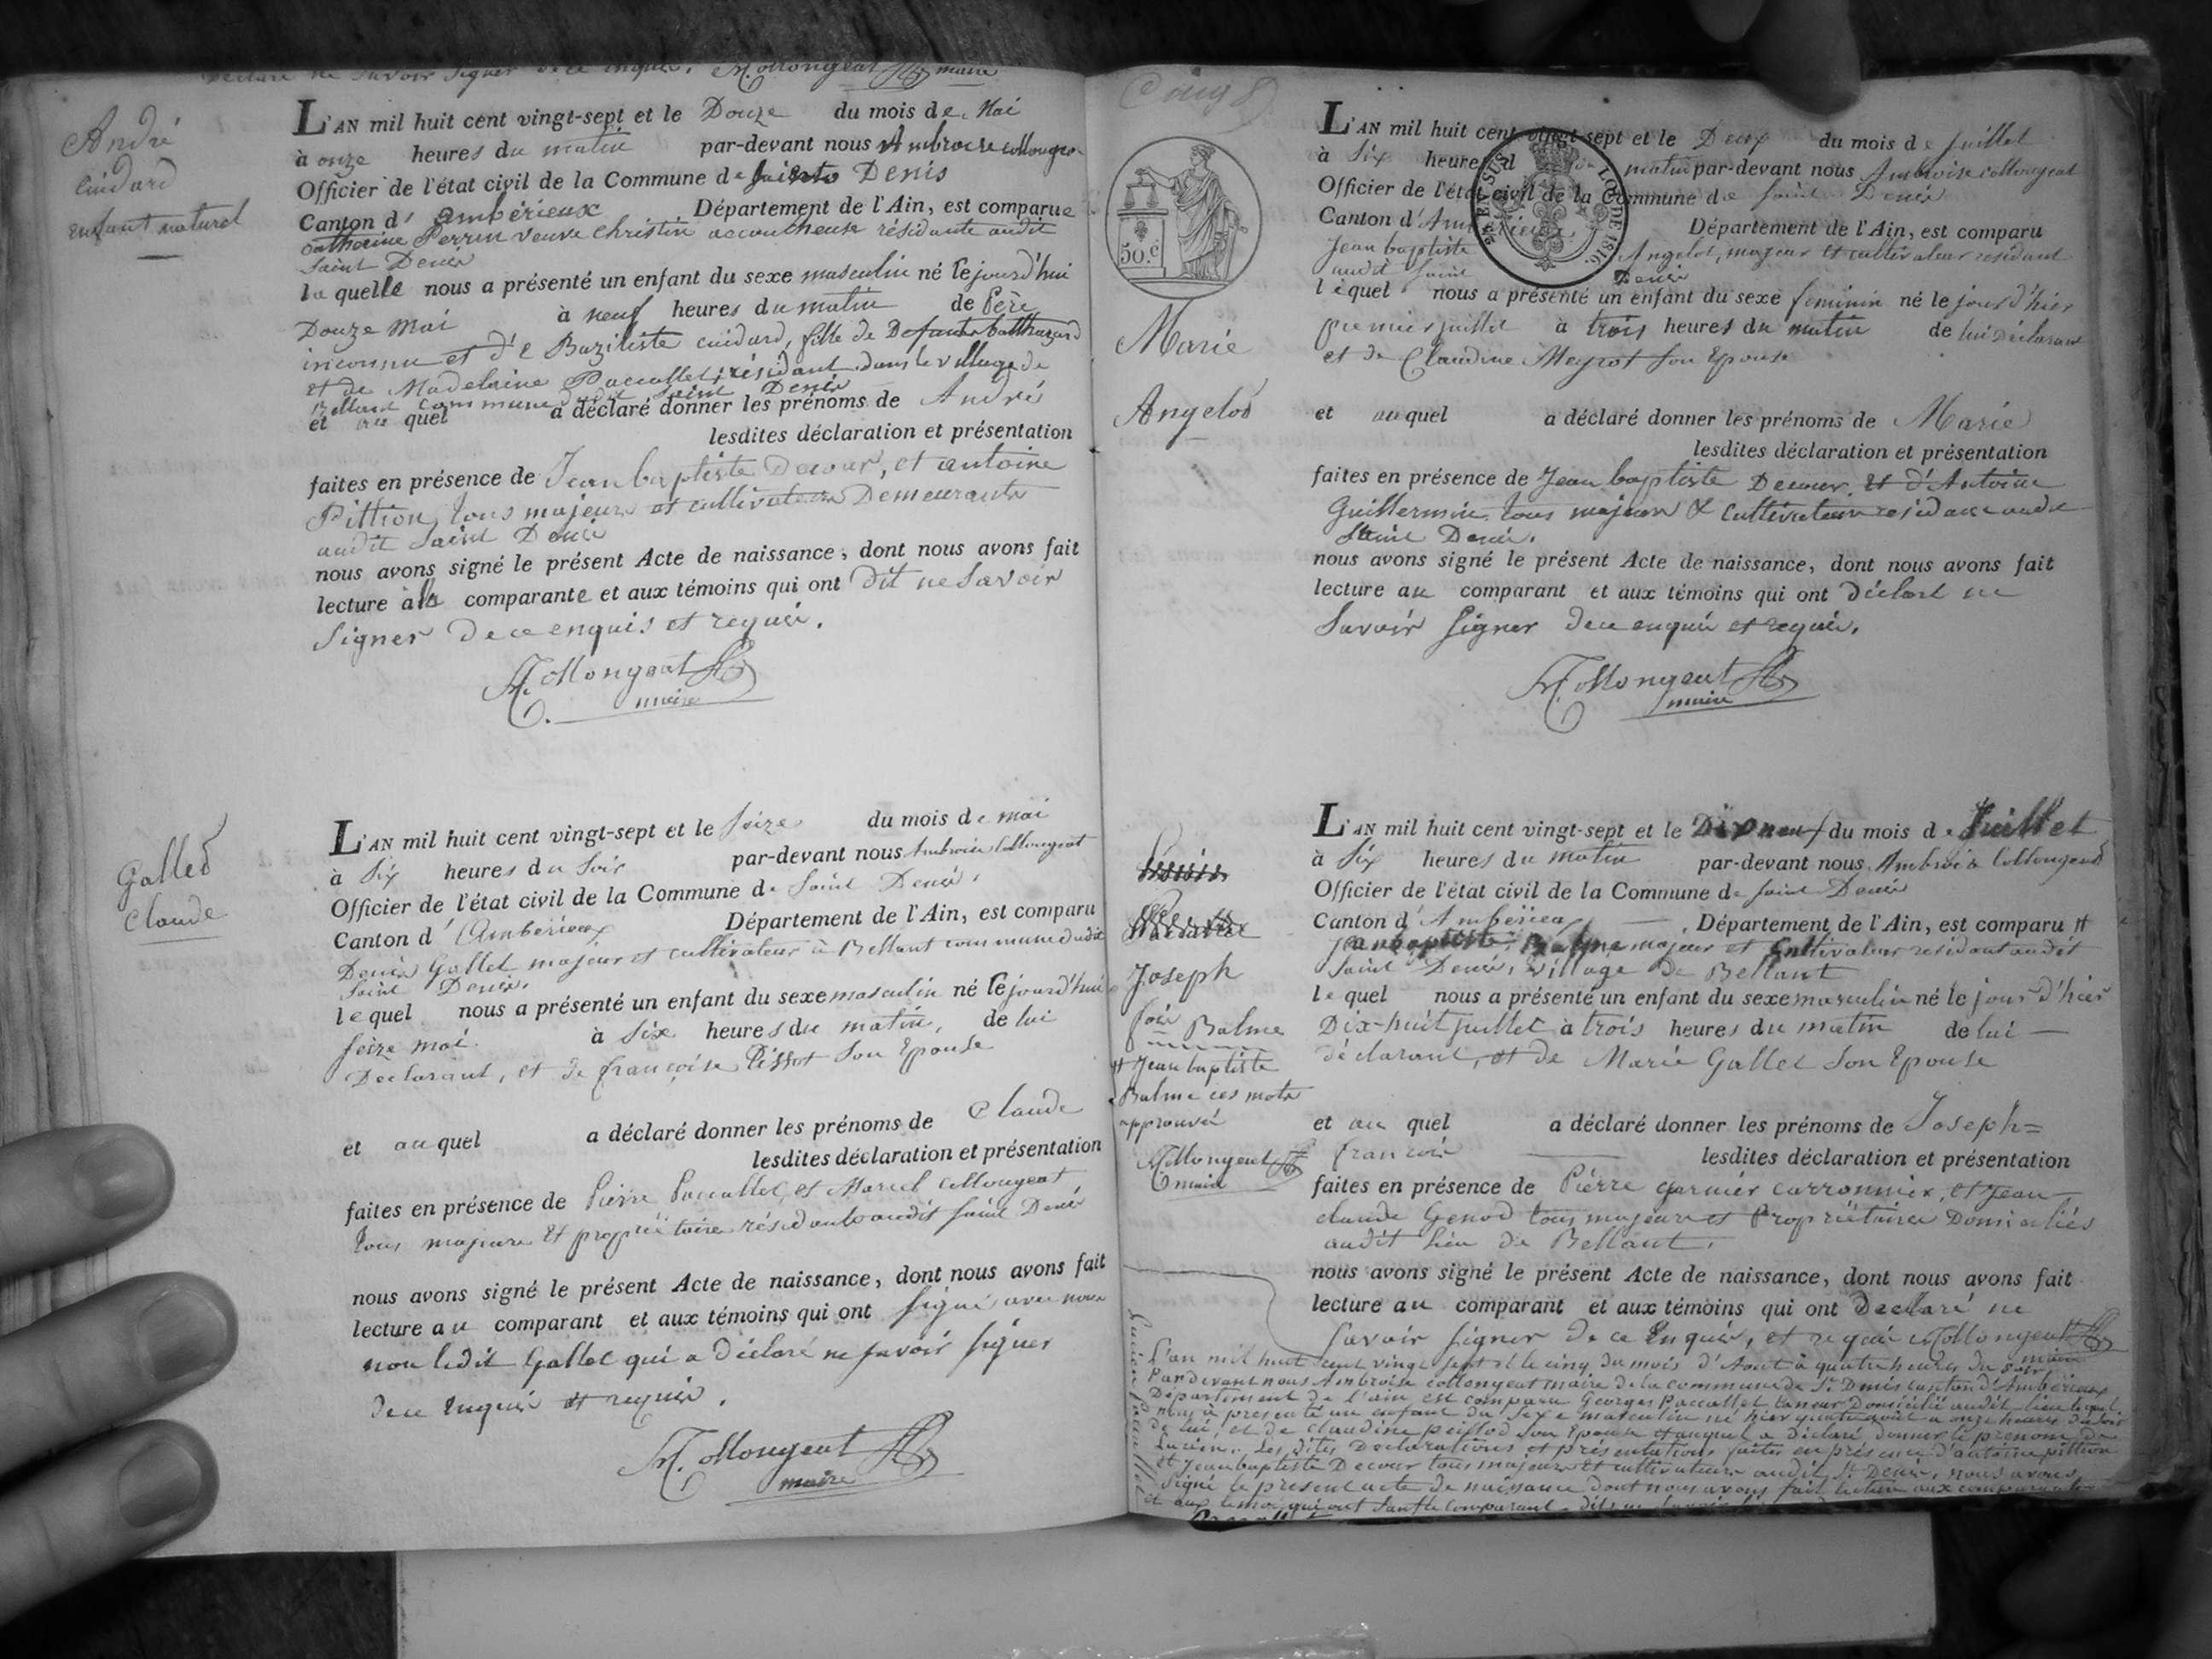 Déclaré ne savoir signer de ce enquis. A. Collongeat maire
André
Cuidard
enfant naturel
L'AN mil huit cent vingt-sept et le Douze du mois de Mai
à onze heures du matin par-devant nous Ambroise collongea
Officier de l'état civil de la Commune de Denis
Canton d'Ambérieux Département de l'Ain, est comparue
catherine Perrin veuve Christin accoucheuse résidante audit
Saint Denis
laquelle nous a présenté un enfant du sexe masculin né le jourd'hui
Douze Mai à neuf heures du matin de Père
inconnu et d'e Baziliste cuidard, fille de Defunts balthazard
et de Madelaine Paccallet, résidant dans le village de
Bellant commune dudit Saint Denis
et au quel a déclaré donner les prénoms de André
lesdites déclaration et présentation
faites en présence de Jean baptiste Decour, et antoine
Pittion, tous majeurs et cultivateurs Demeurants
audit Saint Denis
nous avons signé le présent Acte de naissance, dont nous avons fait
lecture à la comparante et aux témoins qui ont dit ne Savoir
Signer de ce enquis et requis.
A. Collongeat
maire
Gallet
Claude
L'AN mil huit cent vingt-sept et le Seize du mois de mai
à Six heures du Soir par-devant nous Ambroise Collongeat
Officier de l'état civil de la Commune de Saint Denis,
Canton d'Ambérieux Département de l'Ain, est comparu
Denis Gallet majeur et cultivateur à Bellant commune dudit
Saint Denis.
lequel nous a présenté un enfant du sexe masculin né le jourd'hui
seize mai à Six heures du matin, de lui
Declarant, et de françoise Pissot Son Epouse
et au quel a déclaré donner les prénoms de Claude
lesdites déclaration et présentation
faites en présence de Pierre Paccallet, et Marcel Collongeat
tous majeurs et propriétaires résidants audit Saint Denis
nous avons signé le présent Acte de naissance, dont nous avons fait
lecture au comparant et aux témoins qui ont signé avec nous
non ledit Gallet qui a déclaré ne savoir signer
de ce enquis et requis.
A. Collongeat
maire
50.c
Marie
Angelot
L'AN mil huit cent vingt-sept et le Deux du mois de Juillet
à Six heures du matin par-devant nous Ambroise collongeat
Officier de l'état civil de la Commune de Saint Denis
Canton d'Ambérieux Département de l'Ain, est comparu
Jean baptiste Angelot, majeur et cultivateur résidant
audit Saint Denis
EN SUS LOI DE 1816.
lequel nous a présenté un enfant du sexe feminin né le jour d'hier
premier juillet à trois heures du matin de lui Déclarant
et de Claudine Meyrot Son Epouse
et au quel a déclaré donner les prénoms de Marie
lesdites déclaration et présentation
faites en présence de Jean baptiste Decour, et d'Antoine
Guillermin, tous majeurs & Cultivateurs
Saint Denis.
nous avons signé le présent Acte de naissance, dont nous avons fait
lecture au comparant et aux témoins qui ont déclaré ne
Savoir Signer de ce enquis et requis.
A. Collongeat
maire
Joseph
fois Balme
# Jean baptiste
Balme ces mots
approuvés
A. Collongeat
maire
L'AN mil huit cent vingt-sept et le Dix neuf du mois de Juillet
à Six heures du matin par-devant nous Ambroise Collongeat
Officier de l'état civil de la Commune de Saint Denis
Canton d'Ambérieux, Département de l'Ain, est comparu #
Jean baptiste Balme majeur et Cultivateur résidant audit
Saint Denis, village de Bellant
lequel nous a présenté un enfant du sexe masculin né le jour d'hier
Dix-huit juillet à trois heures du matin de lui
déclarant, et de Marie Gallet Son Epouse
et au quel a déclaré donner les prénoms de Joseph=
francois lesdites déclaration et présentation
faites en présence de Pierre garnier carronnier, et Jean
claude Genod tous majeurs et Propriétaires Domiciliés
audit lieu de Bellant.
nous avons signé le présent Acte de naissance, dont nous avons fait
lecture au comparant et aux témoins qui ont Declaré ne
Savoir Signer de ce Enquis, et requis A. Collongeat
maire
Lucien Paccallet
L'an mil huit cent vingt sept et le cinq du mois d'Aout à quatre heures du soir
Pardevant nous Ambroise collongeat maire de la commune de St. Denis canton d'Ambérieux
Département de l'ain est comparu Georges Paccallet Domicilié audit lieu lequel
nous à présenté un enfant du Sexe masculin né hier quatre août a onze heures du soir
de lui, et de Claudine Son Epouse et auquel a déclaré donner le prénom de
Lucien. Les dites Declarations et présentations faites en présence d'antoine pittion
et Jean baptiste Decour tous majeurs et cultivateurs audit St. Denis, nous avons
Signé le présent acte de naissance dont nous avons fait lecture aux comparants
et aux témoins qui ont Sauf le comparant